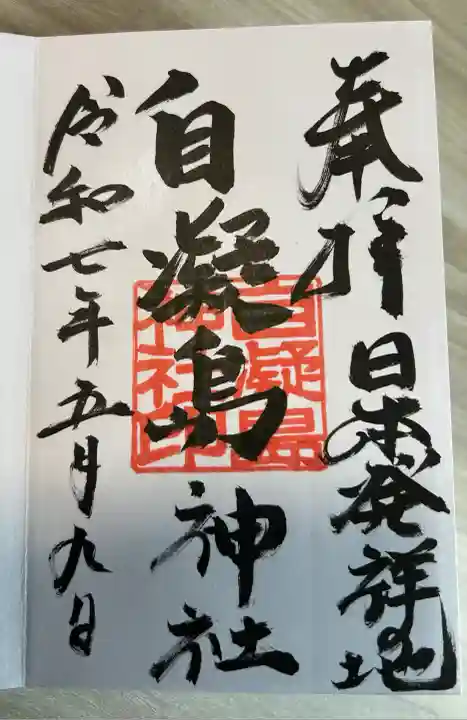 奉拝
日本発祥の地
自凝島神社
自凝島神社印
令和七年五月九日